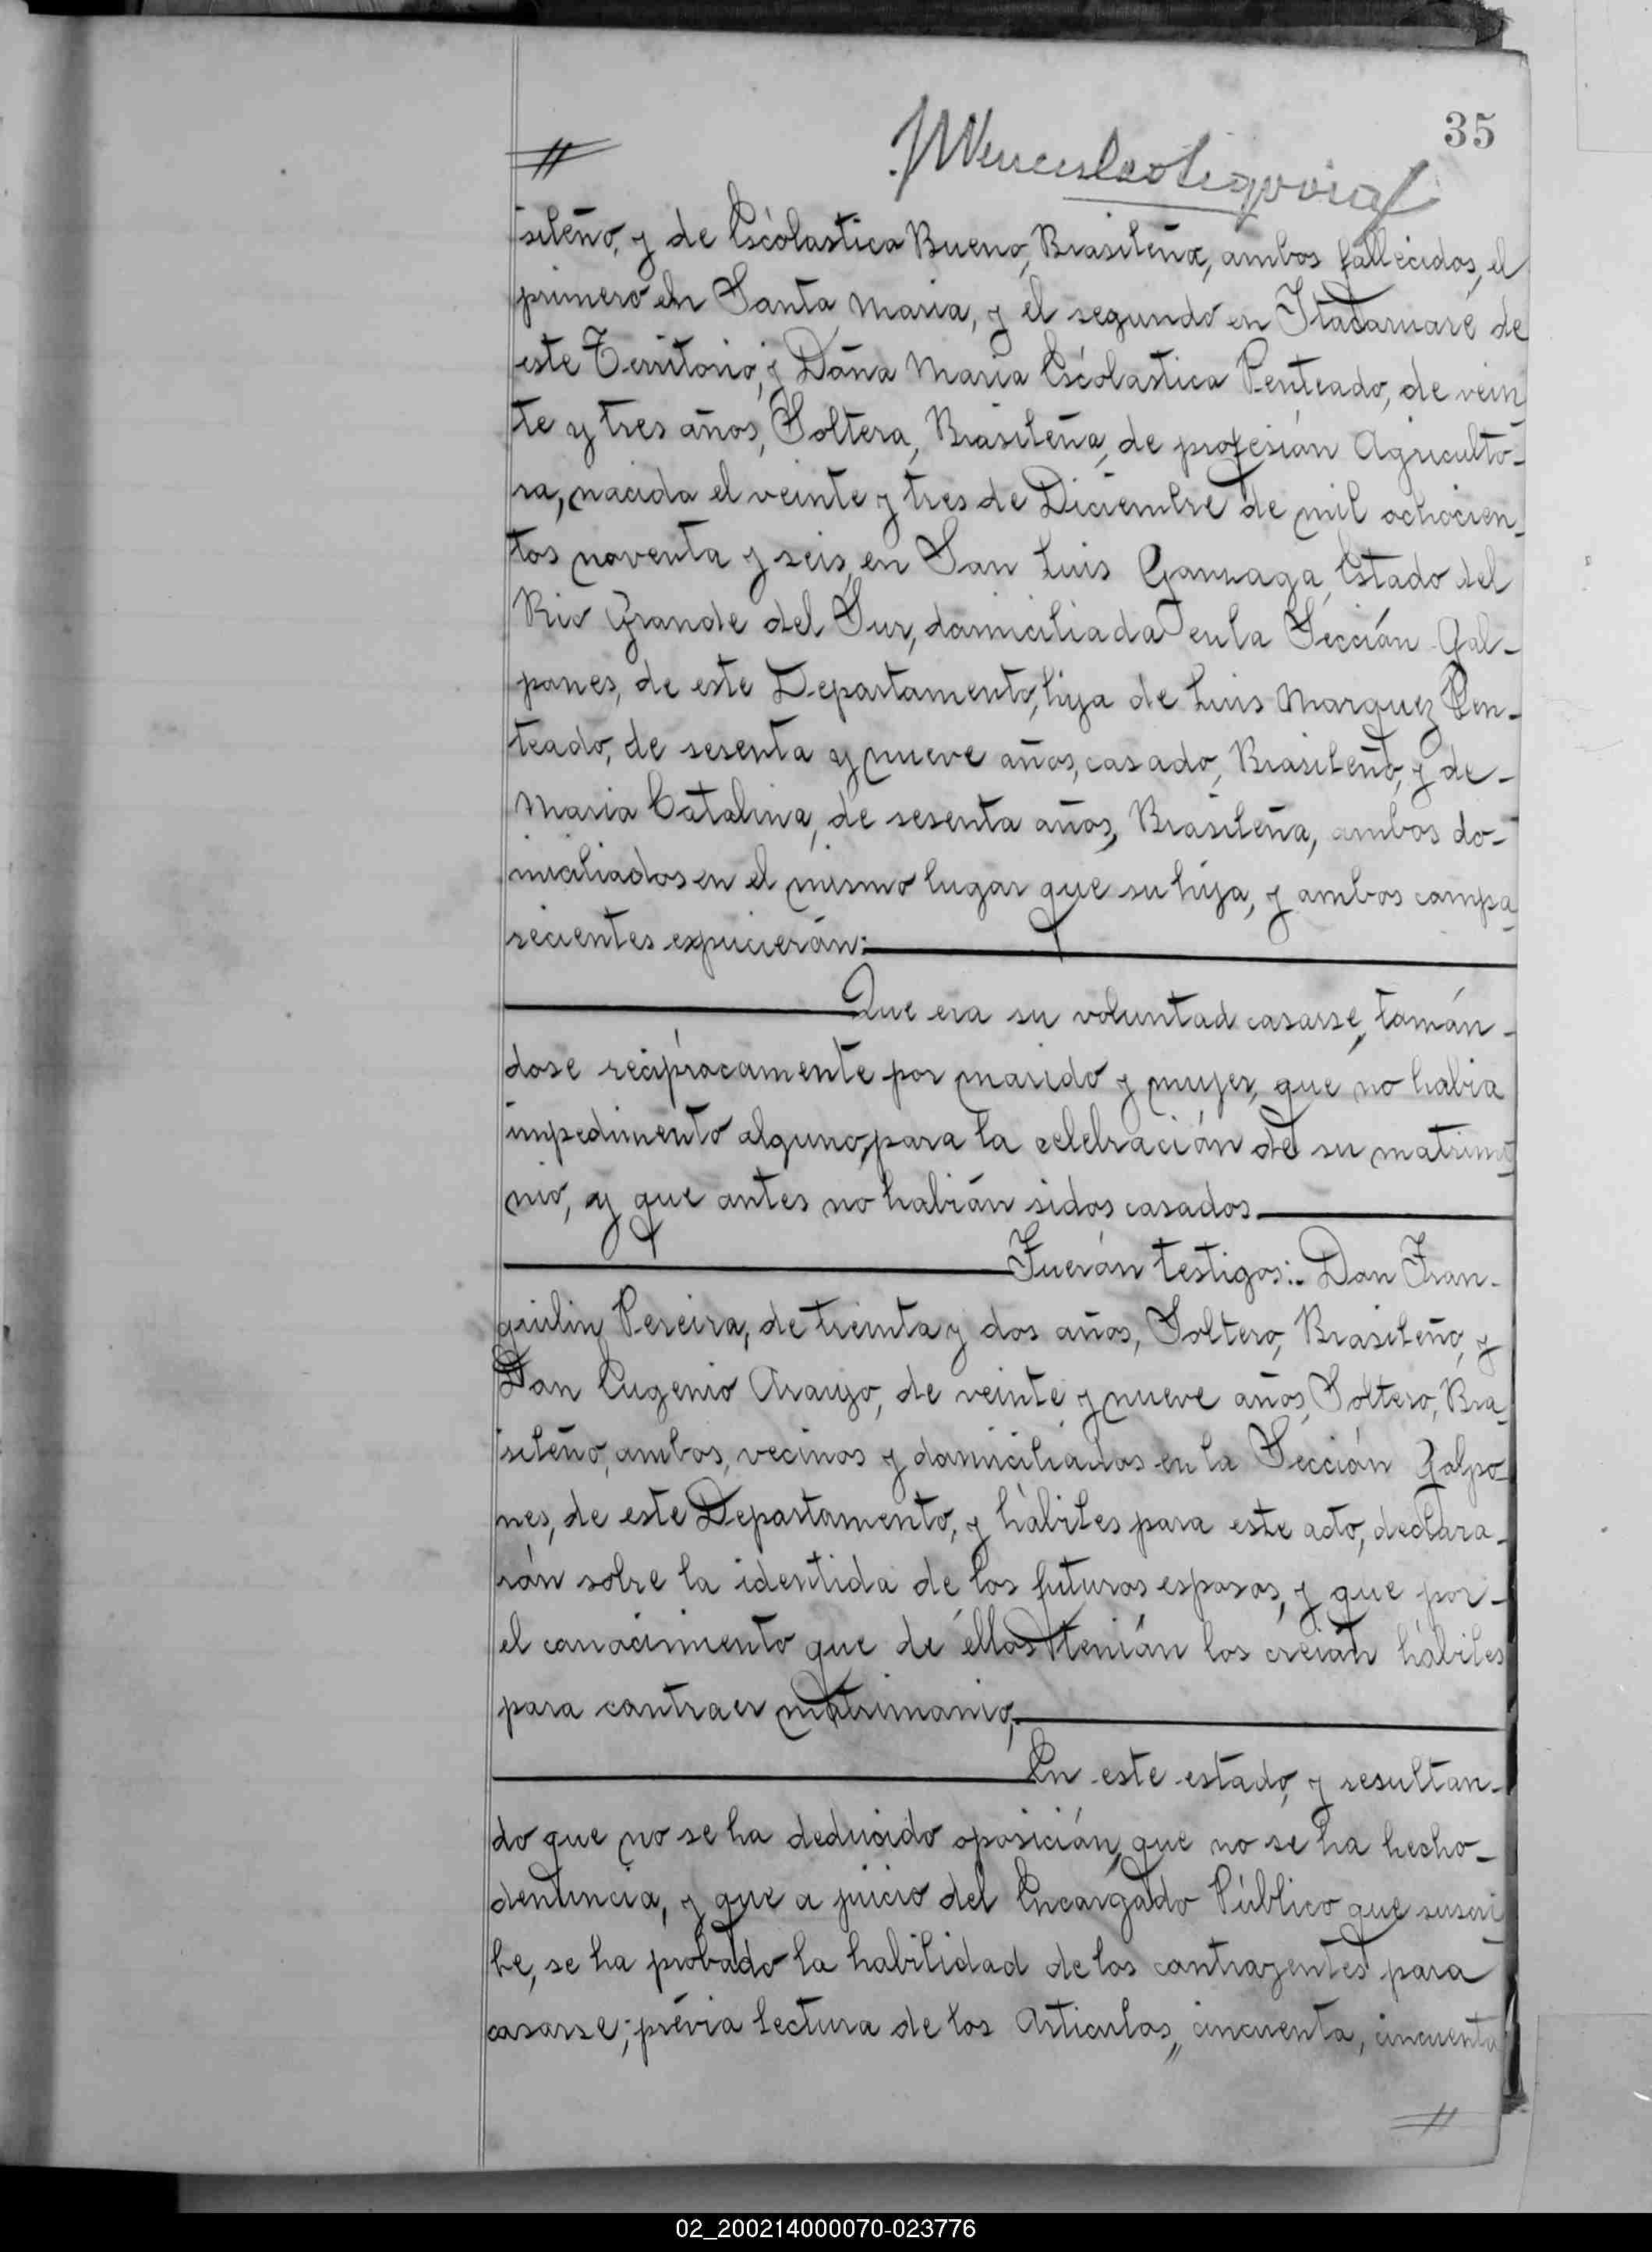 35
sileño, y de Escólastica Bueno, Brasileña, ambos fallécidos, el
primero en Santa Maria, y él segundo en Itacaruaré de
este Territorio, y Doña Maria Escólastica Penteado, de vein
te y tres años, Soltera, Brasileña, de profesión Agriculto-
ra, nacida el veinte y tres de Diciembre de mil ochocien-
tos noventa y seis, en San Luis Gonzaga, Estado del
Rio Grande del Sur, domiciliada en la Sección Gal-
pones, de este Departamento, hija de Luis Marquez Pen-
teado, de sesenta y nueve años, casado, Brasileño, y de-
Maria Catalina, de sesenta años, Brasileña, ambos do-
miciliados en el mismo lugar que su hija, y ambos compa
recientes expucierón:
Que era su voluntad casarse, tomán-
dose recíprocamente por marido y mujer, que no habia
impedimento alguno, para la celebración de su matrimo
nio, y que antes no habián sidos casados
Fuerón testigos:- Don Fran-
quilin Pereira, de treinta y dos años, Soltero, Brasileño, y
Don Eugenio Araujo, de veinte y nueve años, Soltero, Bra-
sileño, ambos, vecinos y domiciliados en la Sección Galpo
nes, de este Departamento, y hàbiles para este acto, declara-
rón sobre la identida de los futuros esposos, y que por-
el conocimiento que de éllos tenián los creián hábiles
para contraer matrimonio,
En este estado, y resultan-
do que no se ha deducido oposición, que no se ha hecho-
denuncia, y que a juicio del Encargado Público que suscri
be, se ha probado la habilidad de los contrayentes para
casarse; prévia lectura de los Articulos,, cincuenta, cincuenta
02_200214000070-023776